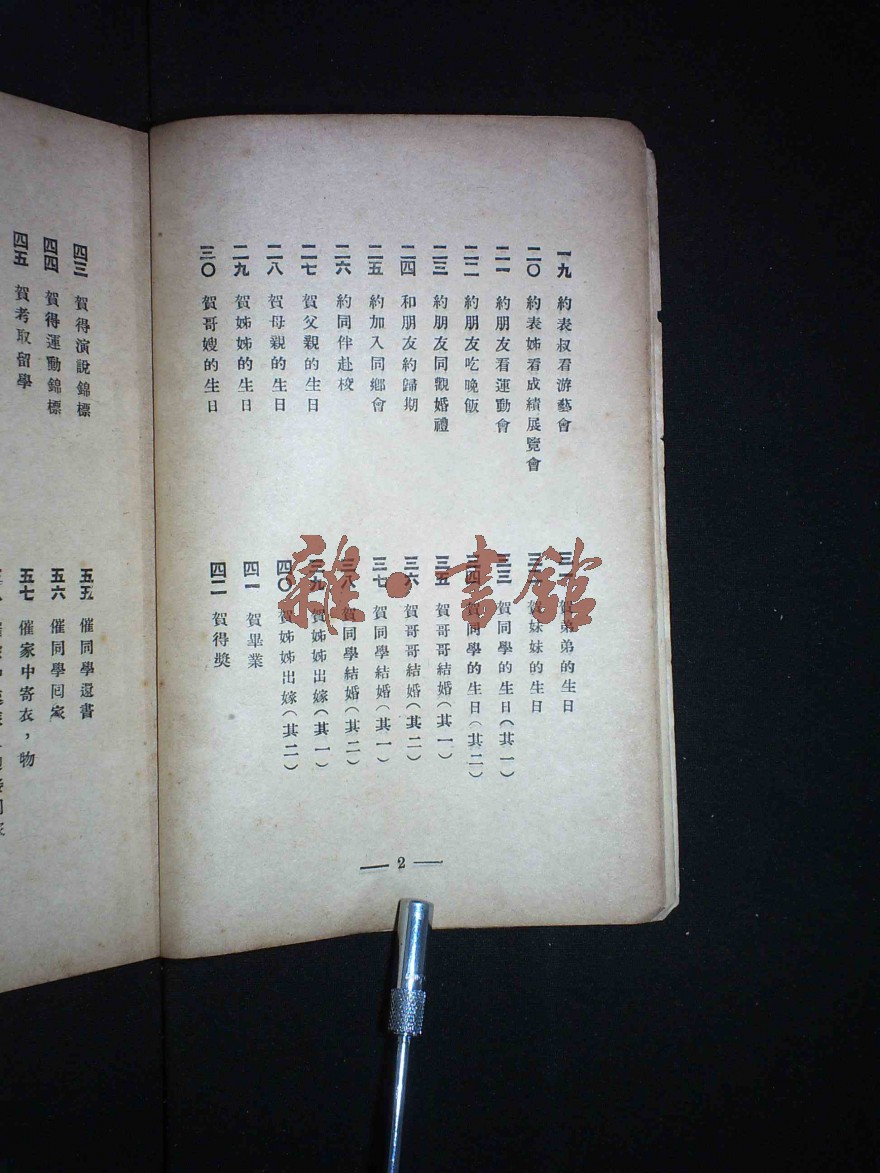 一九 約表叔看游藝會
二〇 約表姊看成績展覽會
二一 約朋友看運動會
二二 約朋友吃晚飯
二三 約朋友同觀婚禮
二四 和朋友約歸期
二五 約加入同鄉會
二六 約同伴赴校
二七 賀父親的生日
二八 賀母親的生日
二九 賀姊姊的生日
三〇 賀哥嫂的生日
三一 賀弟弟的生日
三二 賀妹妹的生日
三三 賀同學的生日(其一)
三四 賀同學的生日(其二)
三五 賀哥哥結婚(其一)
三六 賀哥哥結婚(其二)
三七 賀同學結婚(其一)
三八 賀同學結婚(其二)
三九 賀姊姊出嫁(其一)
四〇 賀姊姊出嫁(其二)
四一 賀畢業
四二 賀得獎
— 2 —
四三 賀得演說錦標
四四 賀得運動錦標
四五 賀考取留學
五五 催同學還書
五六 催同學回家
五七 催家中寄衣，物
雜·書館